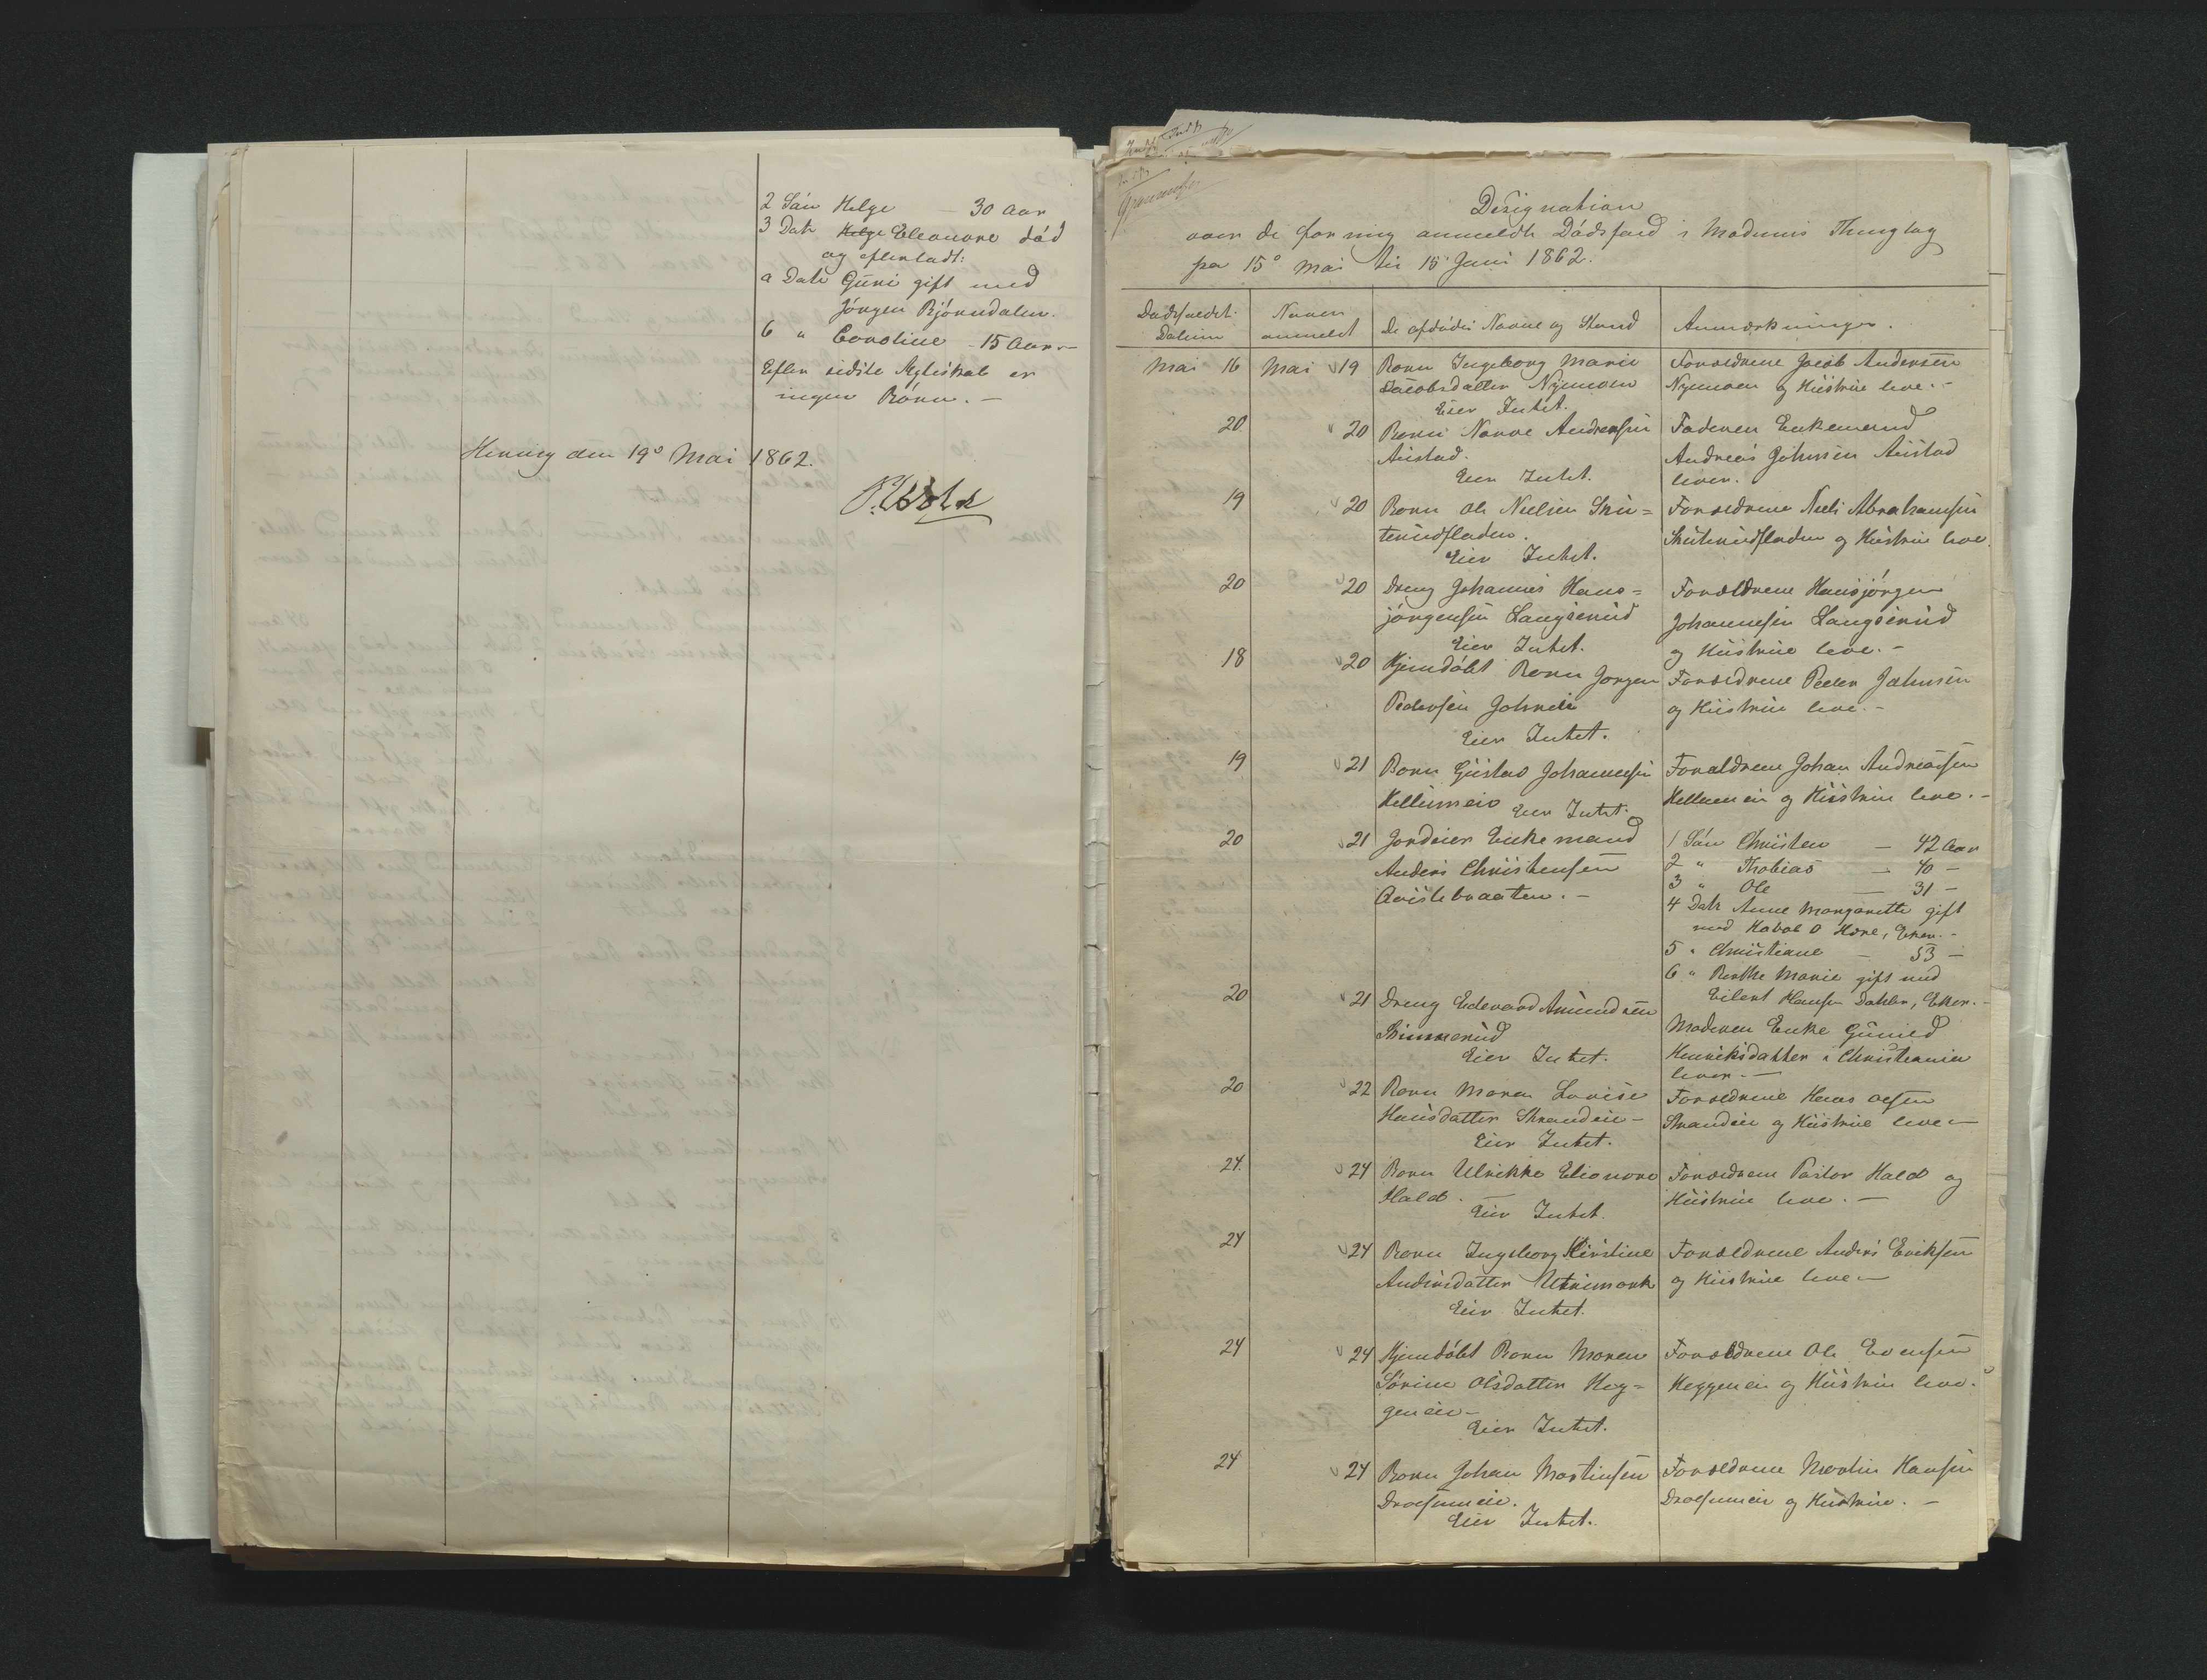 2 Søn Helge — 30 Aar
3 Datr Helge Eleonore død
og efterladt:
a Datr Guri gift med
Jørgen Bjørndalen.
b " Caroline - 15 Aar —
Efter sidste Ægteskab er
ingen Børn. —
den 19° Mai 1862.
Designation
over de for mig anmeldte Dødsfald i Modums Thinglag
fra 15° Mai til 15 Juni 1862.
Dødsfaldets Datum
Naar anmeldt
De afdødes Navne og Stand
Anmærkninger.
Mai 16 Mai 19 Barn Ingeborg Marie
Jacobsdatter Nymoen
Eier Intet.
Forældrene Jacob Andersen
Nymoen og Hustrue leve. -
20 20 Barn Andreasen
Austad.
Eier Intet.
Faderen Enkemand
Andreas Johnsen Austad
lever.
19 20 Barn Ole Nielsen Sku=
terudfladen.
Eier Intet.
Forældrene Niels Abrahamsen
Skuterudfladen og Hustrue leve.
20 20 Dreng Johannes Hans=
jørgensen Langserud
Eier Intet.
Forældrene Hansjørgen
Johannesen Langserud
og Hustrue leve. -
18 20 Hjemdøbt Barn Jørgen
Pedersen
Eier Intet.
Forældrene Peder Johnsen
og Hustrue leve. -
19 21 Barn Gustav Johannesen
Hellumeie Eier Intet.
Forældrene Johan Andreassen
Hellumeie og Hustrue leve. -
20 21 Jordeier Enkemand
Anders Christensen
1 Søn Christen — 42 Aar
2 " Thobias — 40 —
3 " Ole — 31 —
4 Datr Anne Margarethe gift
med O , Eker. -
5 " Christiane — 53 —
6 " Berthe Marie gift med
Eilert Hansen Dahler, Eker. -
20 21 Dreng Edevard Amundsen
Eier Intet.
Moderen Enke Gunild
Henriksdatter i Christiania
lever. —
20 22 Barn Maren Lovise
Hansdatter Strandeie -
Eier Intet.
Forældrene Hans Olsen
Strandeie og Hustrue leve —
24 24 Barn Ulrikke Elionore
Hald. —
Eier Intet.
Forældrene Pastor Hald og
Hustrue leve. —
24 24 Barn Ingeborg Kirstine
Andersdatter
Eier Intet.
Forældrene Anders Eriksen
og Hustrue leve —
24 24 Hjemdøbt Barn Maren
Sørine Olsdatter Heg=
geneie -
Eier Intet.
Forældrene Ole Evensen
Heggeneie og Hustrue leve.
24 24 Barn Johan Martinsen
Eier Intet.
Forældrene Martin Hansen
og Hustrue. —